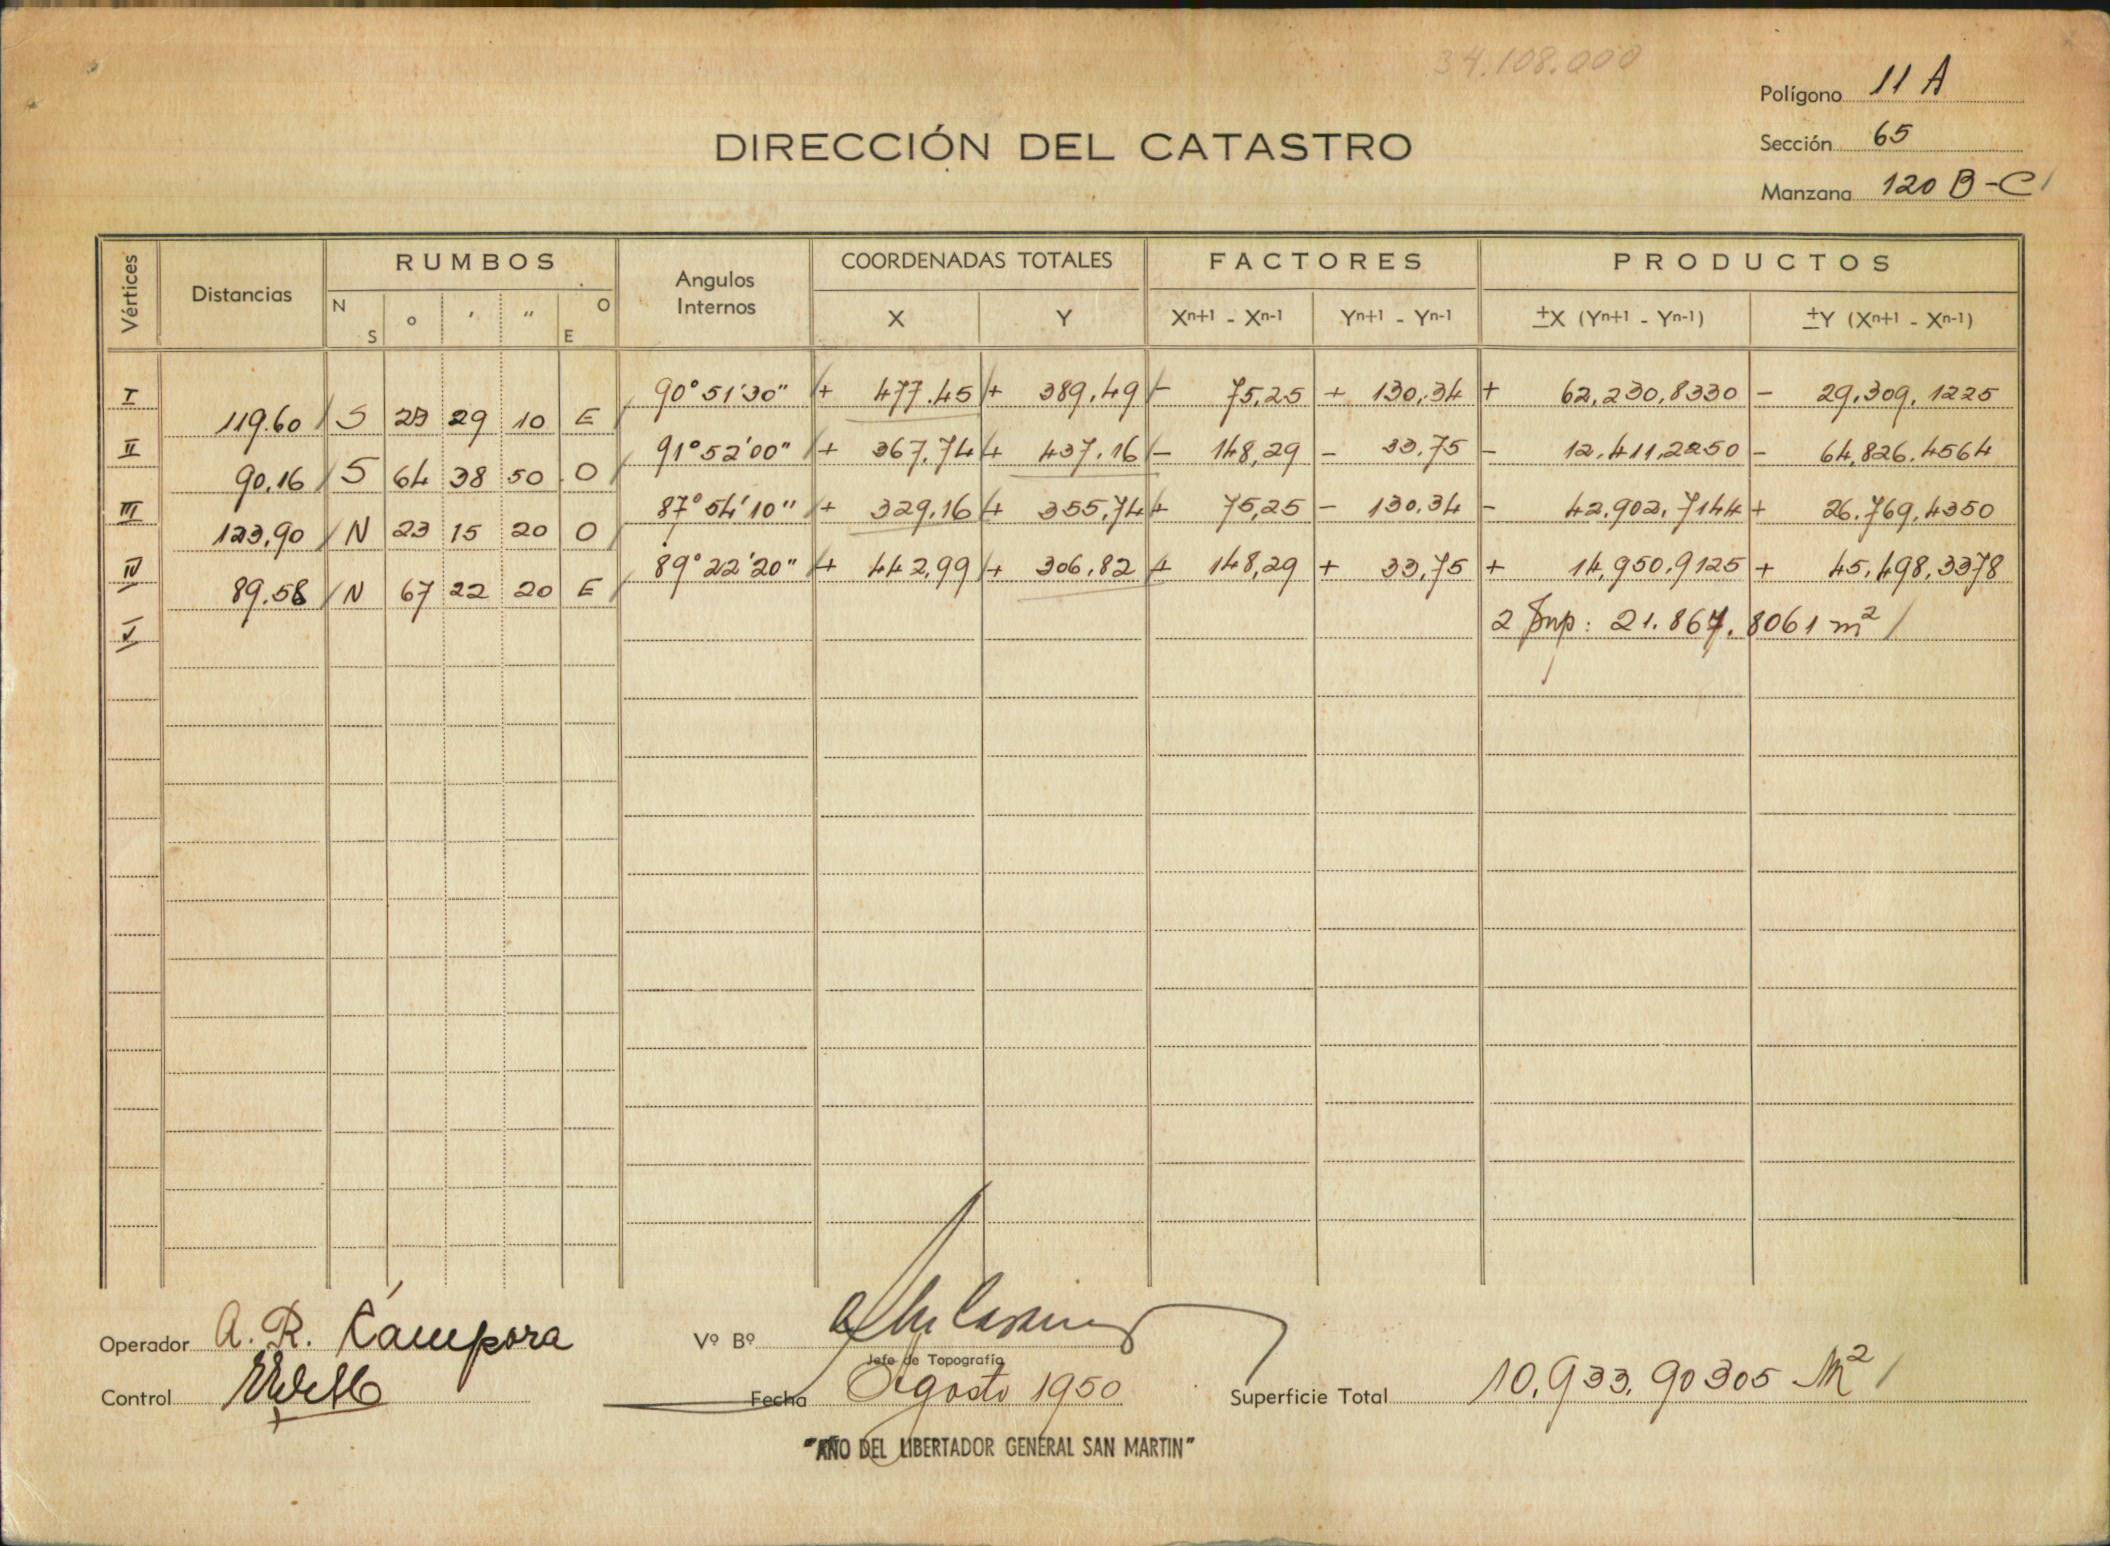 34.108.000
Polígono 11 A
DIRECCIÓN DEL CATASTRO
Sección 65
Manzana 120 B-C
Vértices Distancias RUMBOS Angulos Internos COORDENADAS TOTALES FACTORES PRODUCTOS
N S ° ' " O E X Y Xn+1 - Xn-1 Yn+1 - Yn-1 ±X (Yn+1 - Yn-1) ±Y (Xn+1 - Xn-1)
I 90° 51' 30" + 477.45 + 389,49 - 75,25 + 130,34 + 62,230,8330 - 29,309,1225
119.60 S 23 29 10 E
II 91° 52' 00" + 367,74 + 437,16 - 148,29 - 33,75 - 12,411,2250 - 64,826.4564
90,16 S 64 38 50 O
III 87° 54' 10" + 329,16 + 355,74 + 75,25 - 130,34 - 42,902,7144 + 26.769,4350
123,90 N 23 15 20 O
IV 89° 22' 20" + 442,99 + 306,82 + 148,29 + 33,75 + 14,950,9125 + 45,498,3378
89.58 N 67 22 20 E
V 2 Sup: 21.867.8061 m²
Operador A. R. Cámpora Vº Bº
Jefe de Topografía
Control Fecha Agosto 1950 Superficie Total 10,933,90305 M²
"AÑO DEL LIBERTADOR GENERAL SAN MARTIN"